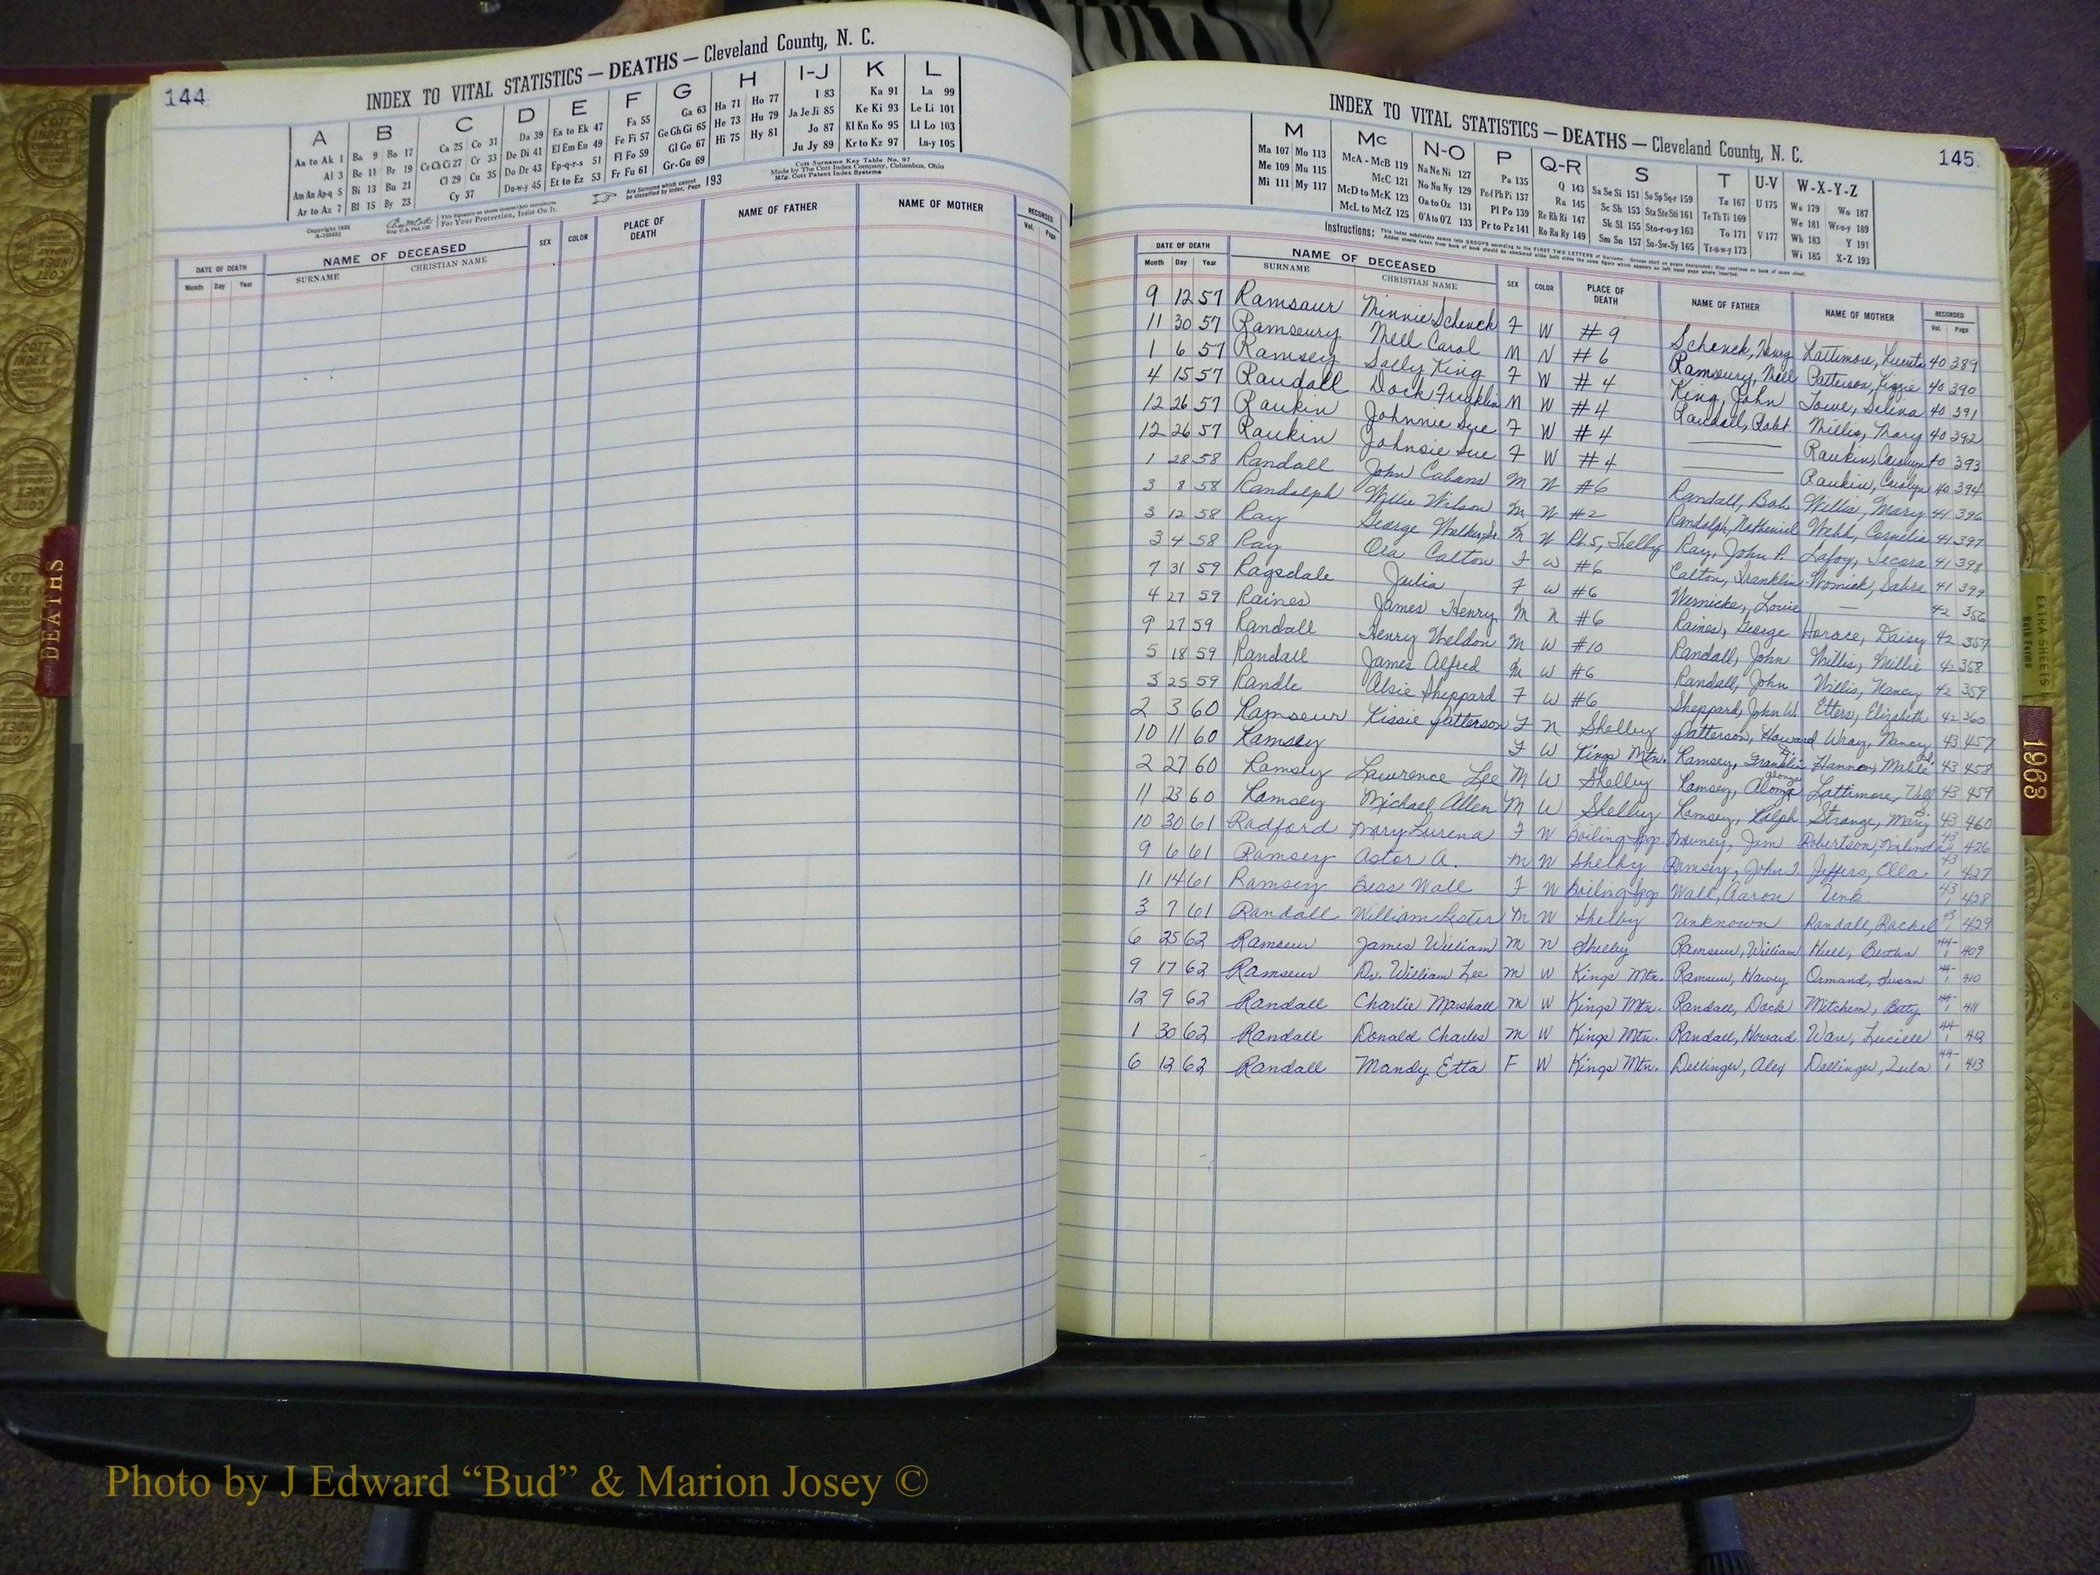 144
INDEX TO VITAL STATISTICS — DEATHS — Cleveland County, N. C.
A B C D E F G H I-J K L
Aa to Ak 1 Ba 9 Bo 17 Ca 25 Co 31 Da 39 Ea to Ek 47 Fa 55 Ga 63 Ha 71 Ho 77 I 83 Ka 91 La 99
Al 3 Be 11 Br 19 Ce Ch Ci 27 Cr 33 De Di 41 El Em En 49 Fe Fi 57 Ge Gh Gi 65 He 73 Hu 79 Ja Je Ji 85 Ke Ki 93 Le Li 101
Am An Ap-q 5 Bi 13 Bu 21 Cl 29 Cu 35 Do Dr 43 Ep-q-r-s 51 Fl Fo 59 Gl Go 67 Hi 75 Hy 81 Jo 87 Kl Kn Ko 95 Ll Lo 103
Ar to Az 7 Bl 15 By 23 Cy 37 Du-w-y 45 Et to Ez 53 Fr Fu 61 Gr-Gu 69 Ju Jy 89 Kr to Kz 97 Lu-y 105
Any Surname which cannot be classified by index, Page 193
Cott Surname Key Table No. 97
Made by The Cott Index Company, Columbus, Ohio
Mfg. Cott Patent Index Systems
For Your Protection, Insist On It.
DATE OF DEATH NAME OF DECEASED SEX COLOR PLACE OF DEATH NAME OF FATHER NAME OF MOTHER RECORDED
Month Day Year SURNAME CHRISTIAN NAME Vol. Page
INDEX TO VITAL STATISTICS — DEATHS — Cleveland County, N. C.
145
M Mc N-O P Q-R S T U-V W-X-Y-Z
Ma 107 Mo 113 McA - McB 119 Na Ne Ni 127 Pa 135 Q 143 Sa Se Si 151 So Sp Sq-r 159 Ta 167 U 175 Wa 179 Wo 187
Me 109 Mu 115 McC 121 No Nu Ny 129 Pe-f Ph Pi 137 Ra 145 Sc Sh 153 Sta Ste Sti 161 Te Th Ti 169 We 181 Wr-u-y 189
Mi 111 My 117 McD to McK 123 Oa to Oz 131 Pl Po 139 Re Rh Ri 147 Sk Sl 155 Sto-r-u-y 163 To 171 V 177 Wh 183 Y 191
McL to McZ 125 O'A to O'Z 133 Pr to Pz 141 Ro Ru Ry 149 Sm Sn 157 Su-Sw-Sy 165 Tr-u-w-y 173 Wi 185 X-Z 193
DATE OF DEATH NAME OF DECEASED SEX COLOR PLACE OF DEATH NAME OF FATHER NAME OF MOTHER RECORDED
Month Day Year SURNAME CHRISTIAN NAME Vol. Page
9 12 57 Ramsaur Minnie Schenck F W #9 Schenck, Henry Lattimore, 40 389
11 30 57 Ramseury Nell Carol M N #6 Ramseury, Nell Patterson, Lizzie 40 390
1 6 57 Ramsey Sally King F W #4 King, John Lowe, Selena 40 391
4 15 57 Randall Dock M W #4 Randall, Robt Willis, Mary 40 392
12 26 57 Rankin Johnnie Sue F W #4 Rankin, Carolyn 40 393
12 26 57 Rankin Johnsie Sue F W #4 Rankin, Carolyn 40 394
1 28 58 Randall John Cabans M W #6 Randall, Bob Willis, Mary 41 396
3 8 58 Randolph Willie Wilson M N #2 Randolph, Nathaniel Webb, Cornelia 41 397
3 12 58 Ray George Walker, Sr. M W Rt 5, Shelby Ray, John P. 41 398
3 4 58 Ray Ora Calton F W #6 Calton, Franklin Womick, 41 399
7 31 59 Ragsdale Julia F W #6 Wernicke, Louie — 42 356
4 27 59 Raines James Henry M N #6 Raines, George Horace, Daisy 42 357
9 27 59 Randall Henry Weldon M W #10 Randall, John Willis, Millie 42 358
5 18 59 Randall James Alfred M W #6 Randall, John Willis, Nancy 42 359
3 25 59 Randle Alsie Sheppard F W #6 Sheppard, John W. Etters, Elizabeth 42 360
2 3 60 Ramseur Kissie Patterson F N Shelby Patterson, Howard Wray, Nancy 43 457
10 11 60 Ramsey F W Kings Mtn. Ramsey, Franklin Hannon, 43 458
2 27 60 Ramsey Lawrence Lee M W Shelby Ramsey, Alonza Lattimore, 43 459
11 23 60 Ramsey Michael Allen M W Shelby Ramsey, Ralph Strange, 43 460
10 30 61 Radford Mary Lurena F W Boiling Spg Jim Robertson, Malinda 43 426
9 6 61 Ramsey Astor A. M W Shelby Ramsey, John T. Jeffers, Ella 43 427
11 14 61 Ramsey Bess Wall F W Boiling Spg Wall, Aaron Unk 43 428
3 7 61 Randall William Lester M W Shelby Unknown Randall, Rachel 43 429
6 25 62 Ramseur James William M N Shelby Ramseur, William Hull, Bertha 44 409
9 17 62 Ramseur Dr. William Lee M W Kings Mtn. Ramseur, Harvey Ormand, Susan 44 410
12 9 62 Randall Charlie Marshall M W Kings Mtn. Randall, Dock Mitchem, Betty 44 411
1 30 62 Randall Donald Charles M W Kings Mtn. Randall, Howard Ware, Lucille 44 412
6 12 62 Randall Mandy Etta F W Kings Mtn. Dellinger, Alex Dellinger, Lula 44 413
DEATHS
1963
EXTRA SHEETS
Photo by J Edward “Bud” & Marion Josey ©